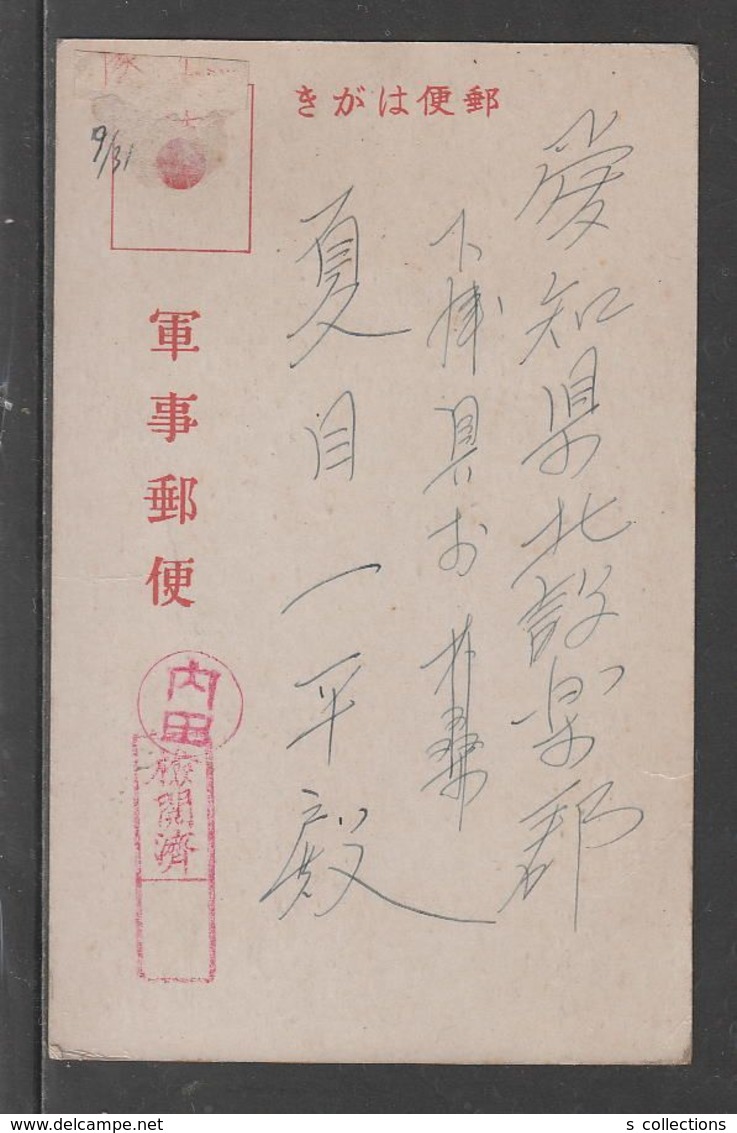 郵便はがき
愛知県北設楽郡
下津具村
夏目一平殿
9/31
軍事郵便
内田
検閲済
s collections